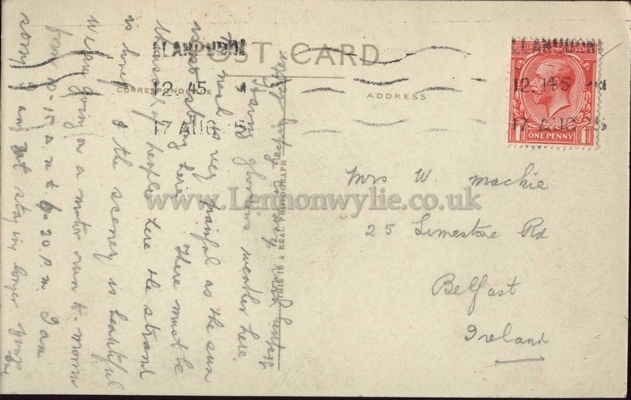 POST CARD
CORRESPONDENCE
ADDRESS
THIS IS A REAL PHOTOGRAPH
LLANDUDNO
12. 45
17 AUG
LLANDUDNO
12. 45
17 AUG
ONE PENNY
better
Having glorious weather here
neck is very painful as the sun
is so strong here. There must be
thousands of people here the strand
is lovely & the scenery is beautiful
We are going on a motor run to-morrow
from 10-15 a.m to 6-20 P.M. I am
sorry I am not staying longer
Mrs W. Mackie
25 Limestone Rd
Belfast
Ireland
www.Lennonwylie.co.uk